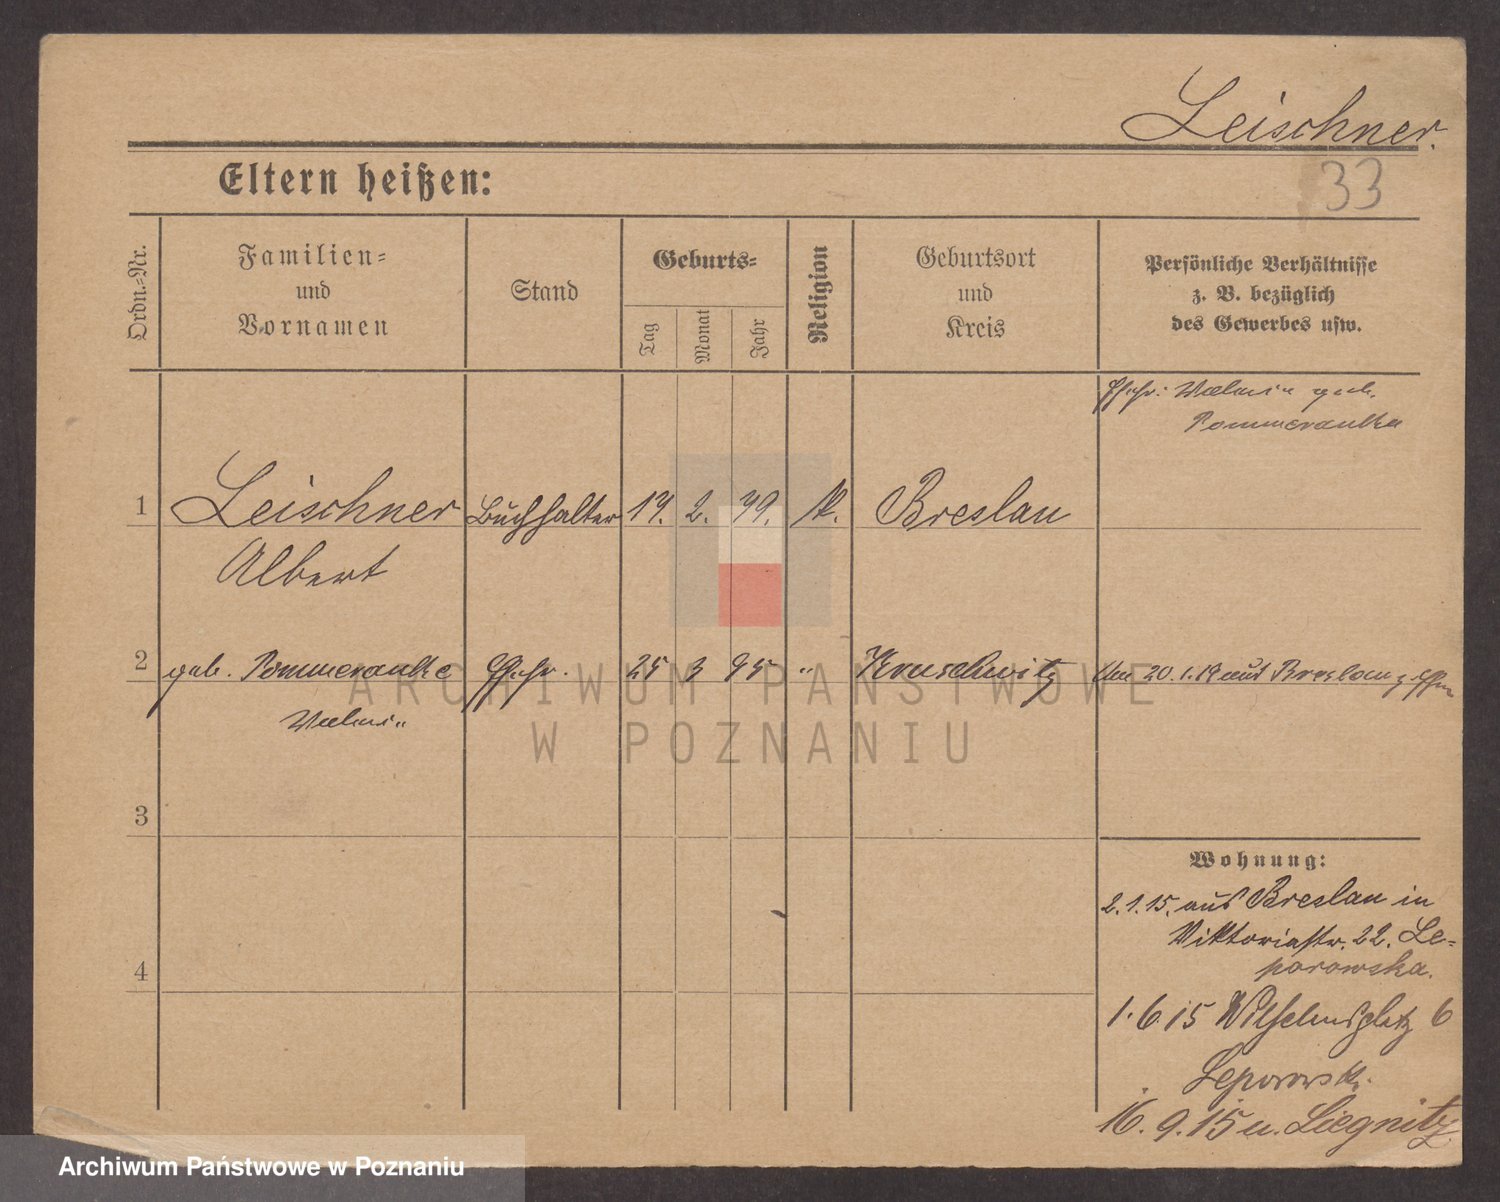 Leischner.
33
Eltern heißen:
Ordn.-Nr.
Familien-
und
Vornamen
Stand
Geburts-
Tag
Monat
Jahr
Religion
Geburtsort
und
Kreis
Persönliche Verhältnisse
z. B. bezüglich
des Gewerbes usw.
Ehefr: geb.
Pommeranke
1 Leischner Buchhalter 2. K. Breslau
Albert
2 geb. Pommeranke Ehefr. 25 3 95 " Kruschwitz
Am 20.1.19 aus Breslau
ARCHIWUM PAŃSTWOWE
W POZNANIU
3
4
Wohnung:
2.1.15. aus Breslau in
Viktoriastr. 22. Le-
porowska.
1.6.15 Wilhelmsplatz 6
Leporowsk.
16.9.15 n. Liegnitz
Archiwum Państwowe w Poznaniu